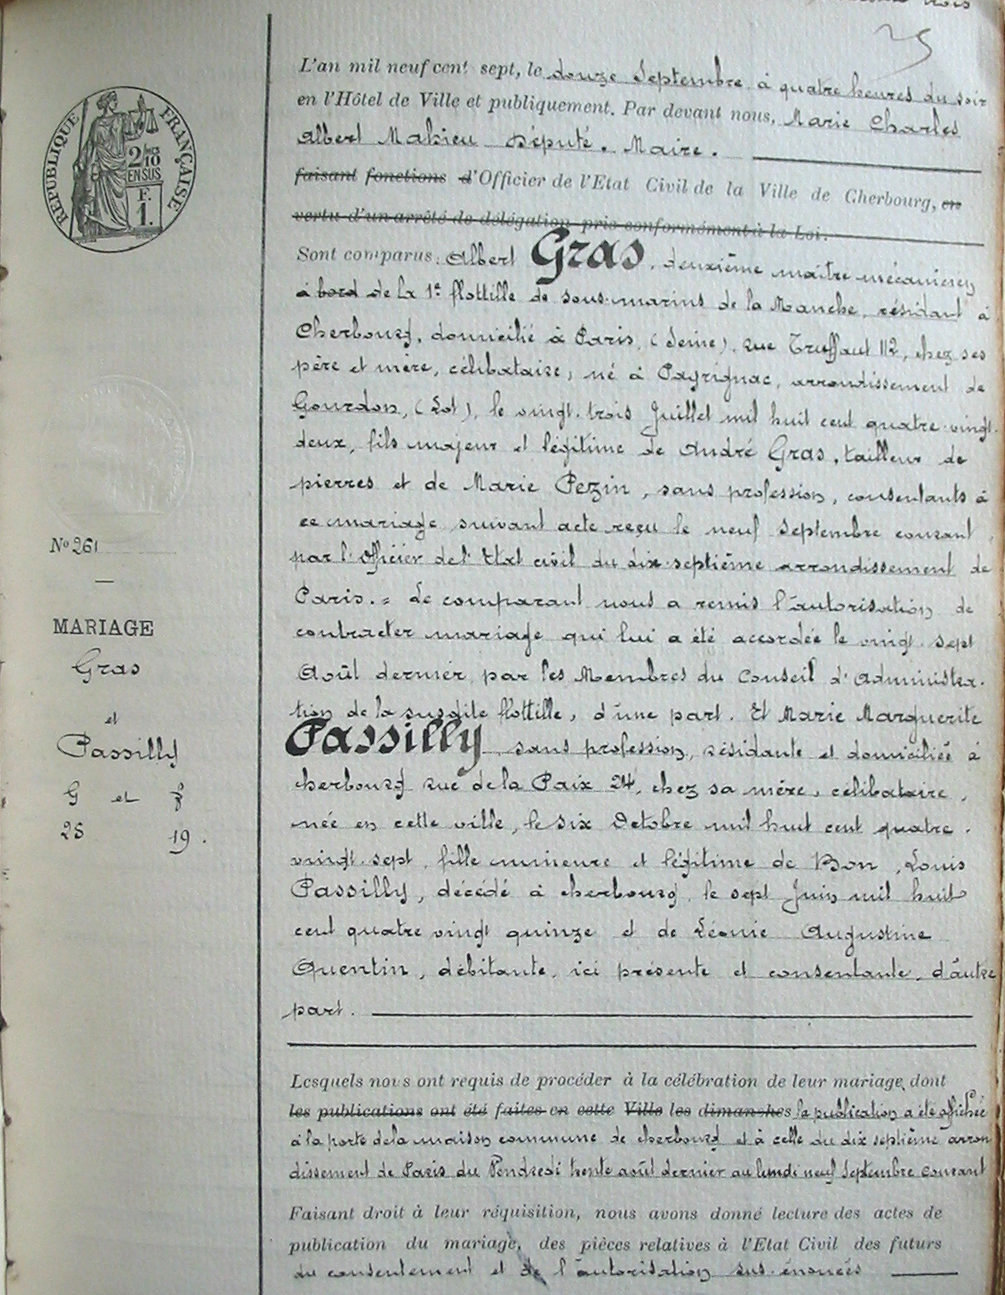 25
L'an mil neuf cent sept, le douze Septembre à quatre heures du soir
en l'Hôtel de Ville et publiquement. Par devant nous, Marie Charles
Albert Mahieu Député. Maire.
faisant fonctions d'Officier de l'Etat Civil de la Ville de Cherbourg, en
vertu d'un arrêté de délégation pris conformément à la Loi.
Sont comparus: Albert Gras, deuxième maître mécanicien
à bord de la 1e flottille de sous-marins de la Manche, résidant à
Cherbourg, domicilié à Paris, (Seine), rue Truffaut 112, chez ses
père et mère, célibataire, né à Payrignac, arrondissement de
Gourdon, (Lot), le vingt-trois Juillet mil huit cent quatre-vingt-
deux, fils majeur et légitime de André Gras, tailleur de
pierres et de Marie Pezin, sans profession, consentants à
ce mariage suivant acte reçu le neuf Septembre courant,
par l'Officier de l'Etat civil du dix-septième arrondissement de
Paris. = Le comparant nous a remis l'autorisation de
contracter mariage qui lui a été accordée le vingt-sept
Août dernier, par les Membres du Conseil d'Administra-
tion de la susdite flottille, d'une part. Et Marie Marguerite
Passilly sans profession, résidante et domiciliée à
Cherbourg rue de la Paix 24, chez sa mère, célibataire,
née en cette ville, le six Octobre mil huit cent quatre-
vingt-sept, fille mineure et légitime de Bon, Louis
Passilly, décédé à Cherbourg, le sept Juin mil huit
cent quatre vingt quinze et de Léonie Augustine
Quentin, débitante, ici présente et consentante, d'autre
part.
Lesquels nous ont requis de procéder à la célébration de leur mariage, dont
les publications ont été faites en cette Ville les dimanches la publication a été affichée
à la porte de la maison commune de Cherbourg et à celle du dix septième arron
dissement de Paris du Vendredi trente août dernier au lundi neuf Septembre courant
Faisant droit à leur réquisition, nous avons donné lecture des actes de
publication du mariage, des pièces relatives à l'Etat Civil des futurs
du consentement et de l'autorisation sus-énoncés
RÉPUBLIQUE FRANÇAISE
2/10
EN SUS
F.
1.
No 261
MARIAGE
Gras
et
Passilly
G et f
25 19.